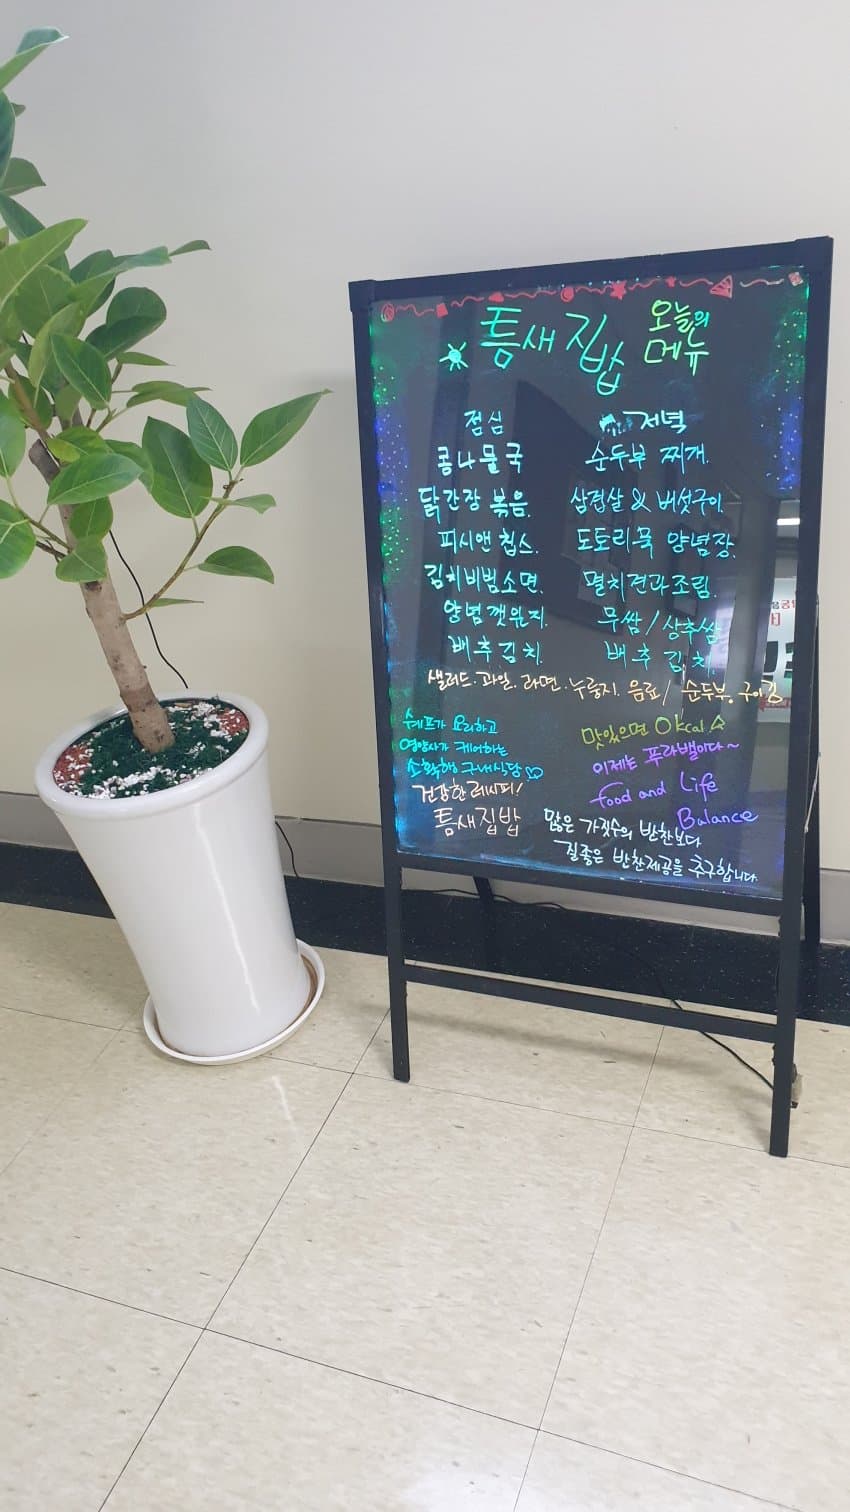 틈새집밥 오늘의 메뉴
점심
콩나물국
닭간장 볶음.
피시앤 칩스.
김치비빔소면.
양념깻잎지.
배추김치.
저녁
순두부 찌개.
삼겹살 & 버섯구이.
도토리묵 양념장.
멸치견과조림.
무쌈 / 상추쌈
배추김치.
샐러드. 과일. 라면. 누룽지. 음료 / 순두부. 구이김.
쉐프가 요리하고
영양사가 케어하는
소확행 구내식당♡
건강한 레시피!
틈새집밥
맛있으면 0kcal ☆
이제는 푸라밸이다~
food and Life
Balance
많은 가짓수의 반찬보다
질좋은 반찬제공을 추구합니다.